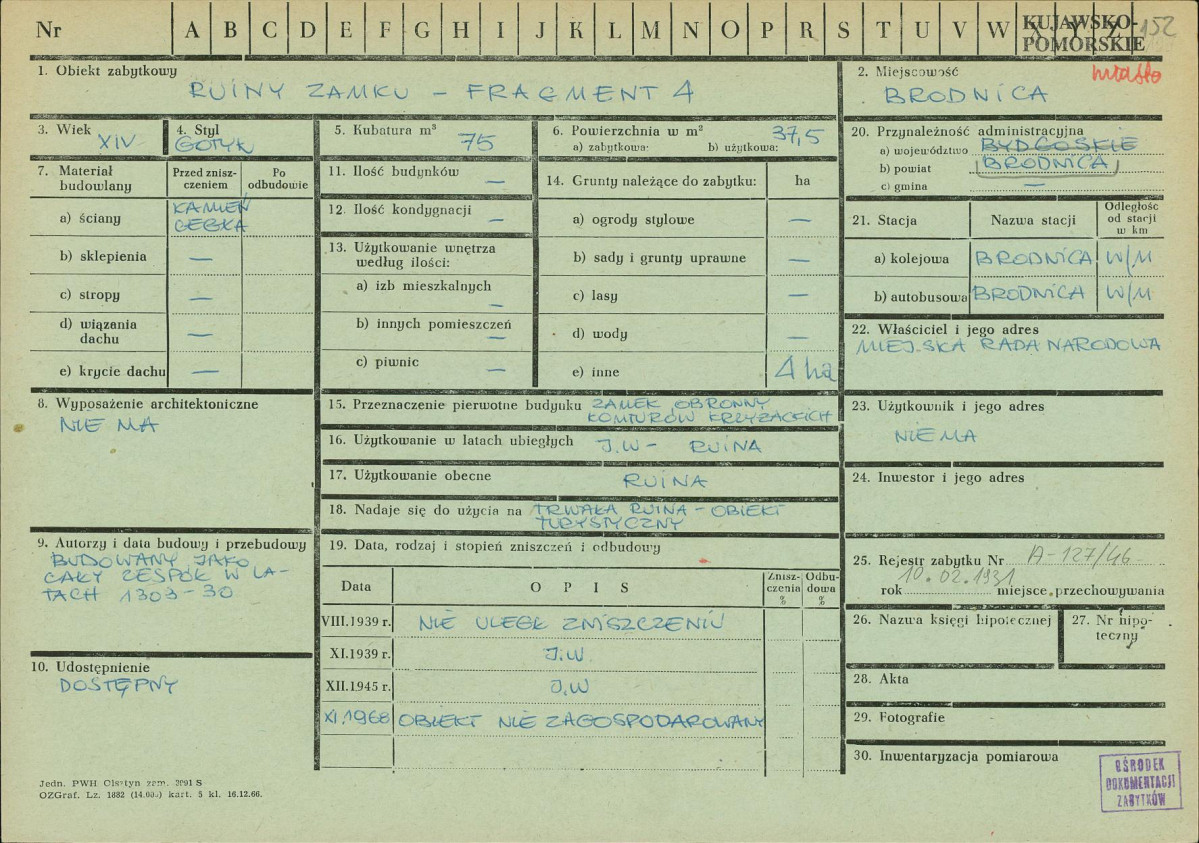 Nr A B C D E F G H I J K L M N O P R S T U V W X Y Z 152
KUJAWSKO-
POMORSKIE
1. Obiekt zabytkowy
RUINY ZAMKU – FRAGMENT 4
2. Miejscowość
miasto
BRODNICA
3. Wiek
XIV
4. Styl
GOTYK
5. Kubatura m³
75
6. Powierzchnia w m²
37,5
a) zabytkowa: b) użytkowa:
7. Materiał
budowlany
Przed znisz-
czeniem
Po
odbudowie
a) ściany
KAMIEŃ
CEGŁA
b) sklepienia —
c) stropy —
d) wiązania
dachu —
e) krycie dachu —
8. Wyposażenie architektoniczne
NIE MA
9. Autorzy i data budowy i przebudowy
BUDOWANY JAKO
CAŁY ZESPÓŁ W LA-
TACH 1303-30
10. Udostępnienie
DOSTĘPNY
11. Ilość budynków —
12. Ilość kondygnacji —
13. Użytkowanie wnętrza
według ilości:
a) izb mieszkalnych —
b) innych pomieszczeń —
c) piwnic —
14. Grunty należące do zabytku: ha
a) ogrody stylowe —
b) sady i grunty uprawne —
c) lasy —
d) wody —
e) inne 4 ha
15. Przeznaczenie pierwotne budynku ZAMEK OBRONNY
KOMTURÓW KRZYŻACKICH
16. Użytkowanie w latach ubiegłych J.W – RUINA
17. Użytkowanie obecne RUINA
18. Nadaje się do użycia na TRWAŁA RUINA – OBIEKT
TURYSTYCZNY
19. Data, rodzaj i stopień zniszczeń i odbudowy
Data OPIS Znisz-
czenia
%
Odbu-
dowa
%
VIII.1939 r. NIE ULEGŁ ZNISZCZENIU
XI.1939 r. J.W
XII.1945 r. J.W
XI.1968 OBIEKT NIE ZAGOSPODAROWANY
20. Przynależność administracyjna
a) województwo BYDGOSKIE
b) powiat BRODNICA
c) gmina —
21. Stacja Nazwa stacji Odległość
od stacji
w km
a) kolejowa BRODNICA W/M
b) autobusowa BRODNICA W/M
22. Właściciel i jego adres
MIEJSKA RADA NARODOWA
23. Użytkownik i jego adres
NIE MA
24. Inwestor i jego adres
25. Rejestr zabytku Nr A-127/46
10.02.1931
rok miejsce przechowywania
26. Nazwa księgi hipotecznej
27. Nr hipo-
teczny
28. Akta
29. Fotografie
30. Inwentaryzacja pomiarowa
OŚRODEK
DOKUMENTACJI
ZABYTKÓW
Jedn. PWH Olsztyn zam. 2091 S
OZGraf. Lz. 1882 (14.000) kart. 5 kl. 16.12.66.